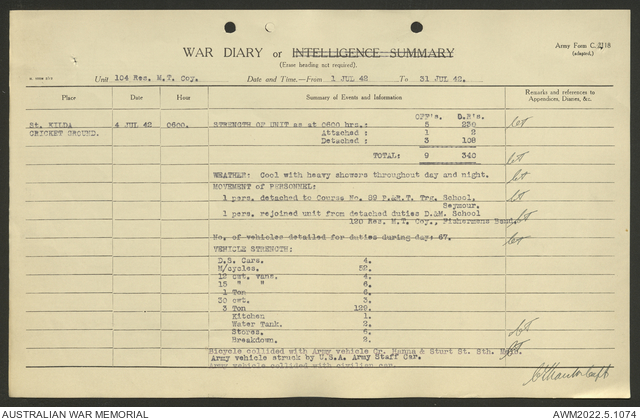 Army Form C.2118
(adapted.)
WAR DIARY or INTELLIGENCE SUMMARY
(Erase heading not required).
Unit 104 Res. M.T. Coy. Date and Time.—From 1 JUL 42 To 31 JUL 42.
Place Date Hour Summary of Events and Information Remarks and references to
Appendices, Diaries, &c.
OFF's. O.R's.
St. KILDA 4 JUL 42 0600. STRENGTH OF UNIT as at 0600 hrs.: 5 230
CRICKET GROUND. Attached: 1 2
Detached: 3 108
TOTAL: 9 340
WEATHER: Cool with heavy showers throughout day and night.
MOVEMENT of PERSONNEL:
1 pers. detached to Course No. 29 P.&R.T. Trg. School,
Seymour.
1 pers. rejoined unit from detached duties D.&M. School
120 Res. M.T. Coy., Fishermans Bend.
No. of vehicles detailed for duties during day: 67.
VEHICLE STRENGTH:
D.S. Cars. 4.
M/cycles. 52.
12 cwt. vans. 4.
15 " " 6.
1 Ton 6.
30 cwt. 3.
3 Ton 129.
Kitchen 1.
Water Tank. 2.
Stores. 6.
Breakdown. 2.
Bicycle collided with Army vehicle Cr. Hanna & Sturt St. Sth. Melb.
Army vehicle struck by U.S.A. Army Staff Car.
Army vehicle collided with civilian car.
AUSTRALIAN WAR MEMORIAL AWM2022.5.1074